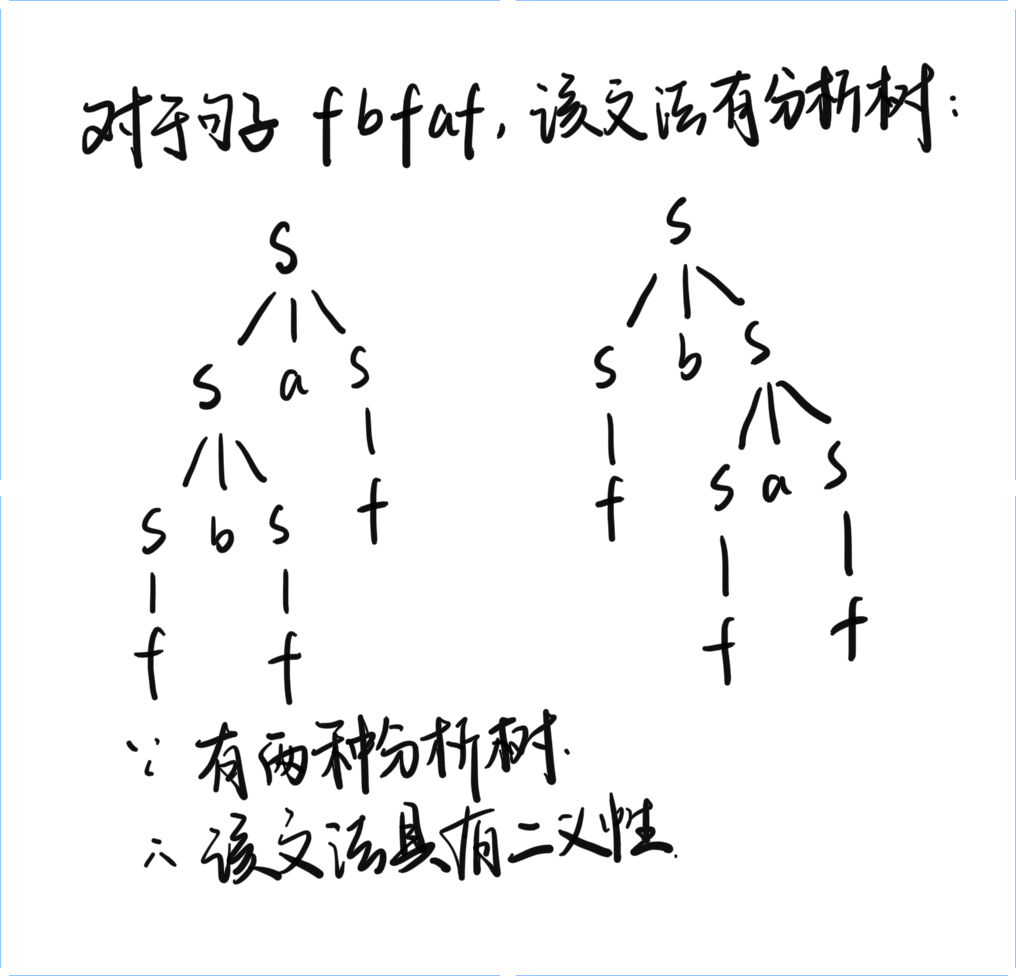 对于句子 fbfaf, 该文法有分析树:
S S
S a S S b S
S b S f f S a S
f f f f
∵ 有两种分析树.
∴ 该文法具有二义性.